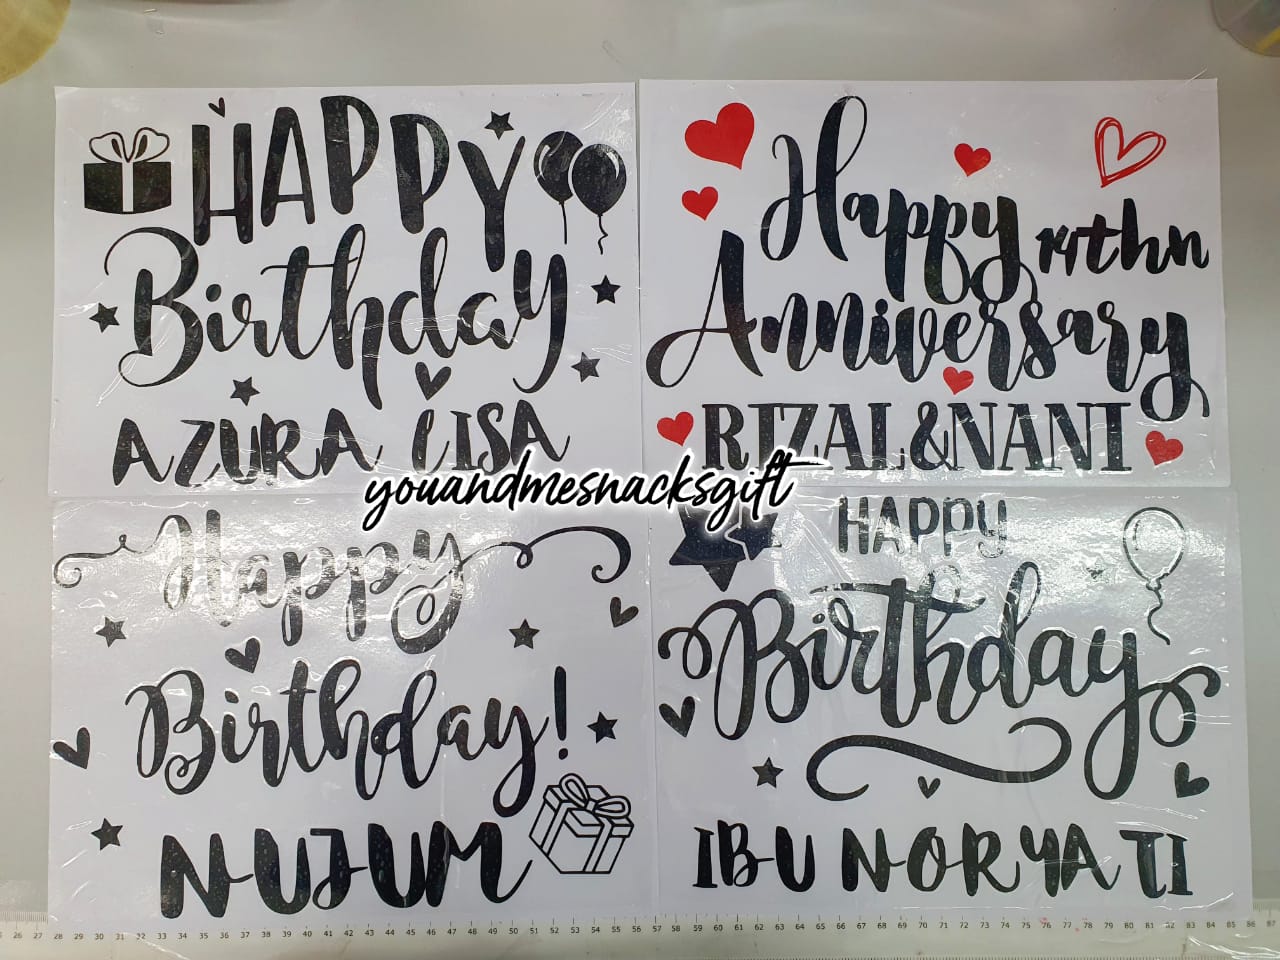 HAPPY
Birthday
AZURA LISA
Happy 14thn
Anniversary
RIZAL&NANI
youandmesnacksgift
Happy
Birthday!
NUJUM
HAPPY
Birthday
IBU NORYATI
26 27 28 29 30 31 32 33 34 35 36 37 38 39 40 41 42 43 44 45 46 47 48 49 50 51 52 53 54 55 56 57 58 59 60 61 62 63 64 65 66 67 68 69 70 71 72 73 74 75 76 77 78 79 80 81 82 83 84 85 86 87